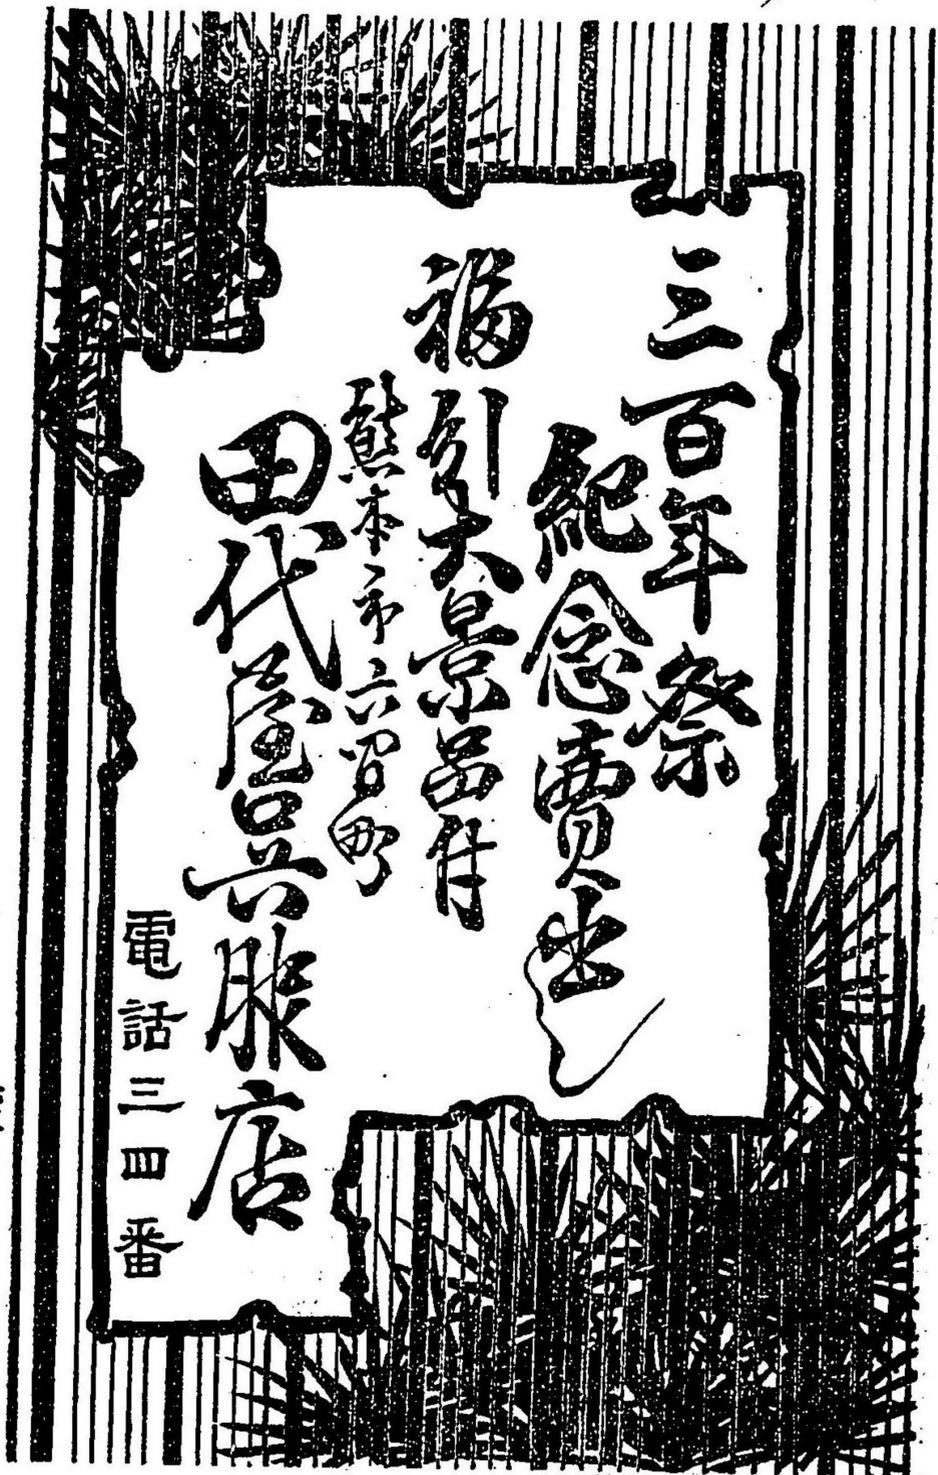 三百年祭
紀念賣出し
福引大景品付
熊本市六間町
田代屋呉服店
電話三四番